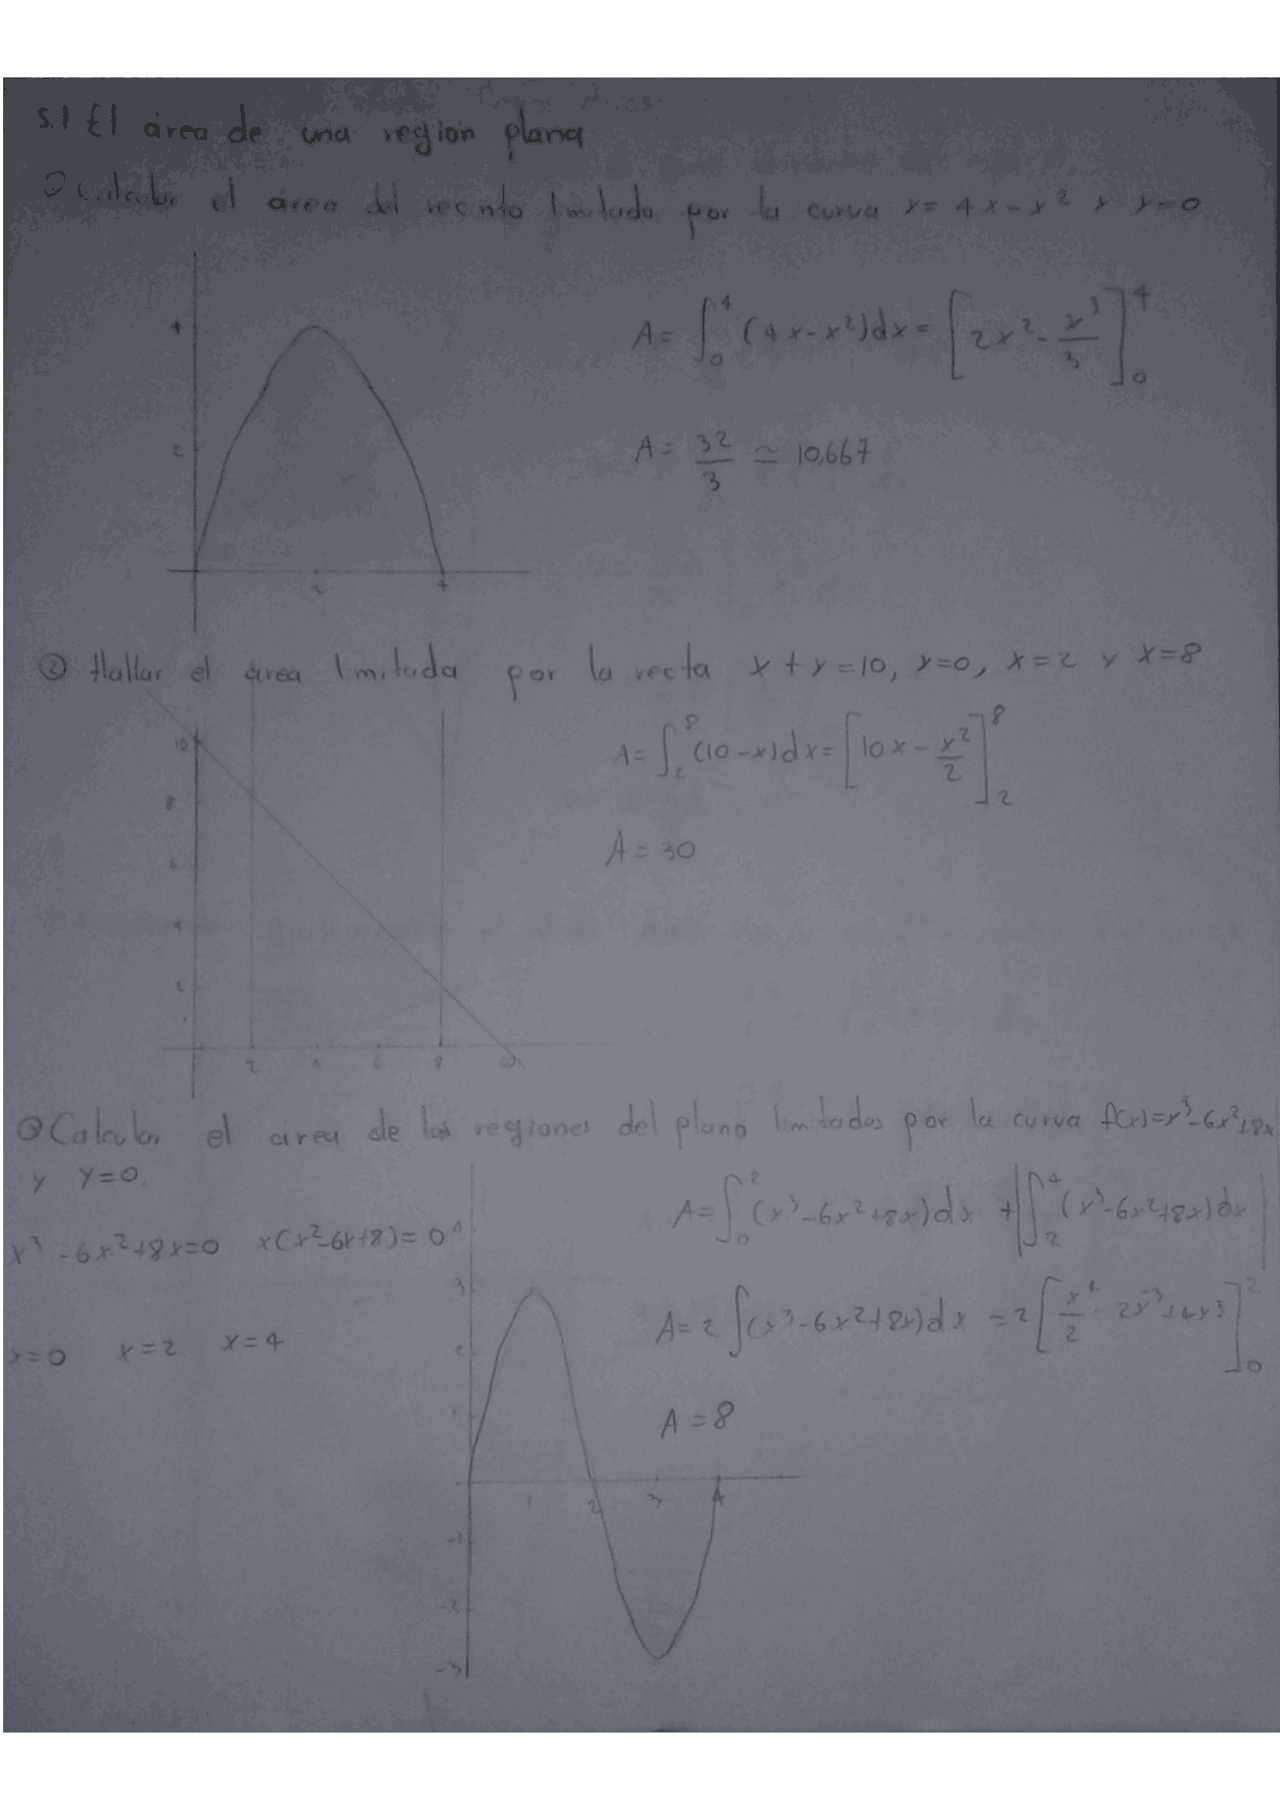 5.1 El área de una region plana
① Calcular el área del recinto limitado por la curva y = 4x - x² y y=0
4
A = ∫₀⁴ (4x-x²)dx = [2x² - x³/3]₀⁴
2
A = 32/3 ≃ 10,667
2 4
② Hallar el área limitada por la recta x + y = 10, y=0, x=2 y x=8
10
A = ∫₂⁸ (10-x)dx = [10x - x²/2]₂⁸
8
6
A = 30
4
2
2 4 6 8 10
③ Calcular el área de las regiones del plano limitadas por la curva f(x)=x³-6x²+8x
y y=0.
A = ∫₀² (x³-6x²+8x)dx + |∫₂⁴ (x³-6x²+8x)dx|
x³-6x²+8x=0 x(x²-6x+8)=0
4
3
A = 2∫(x³-6x²+8x)dx = 2[x⁴/2 - 2x³+4x3]₀²
x=0 x=2 x=4
2
1
A = 8
1 2 3 4
-1
-2
-3